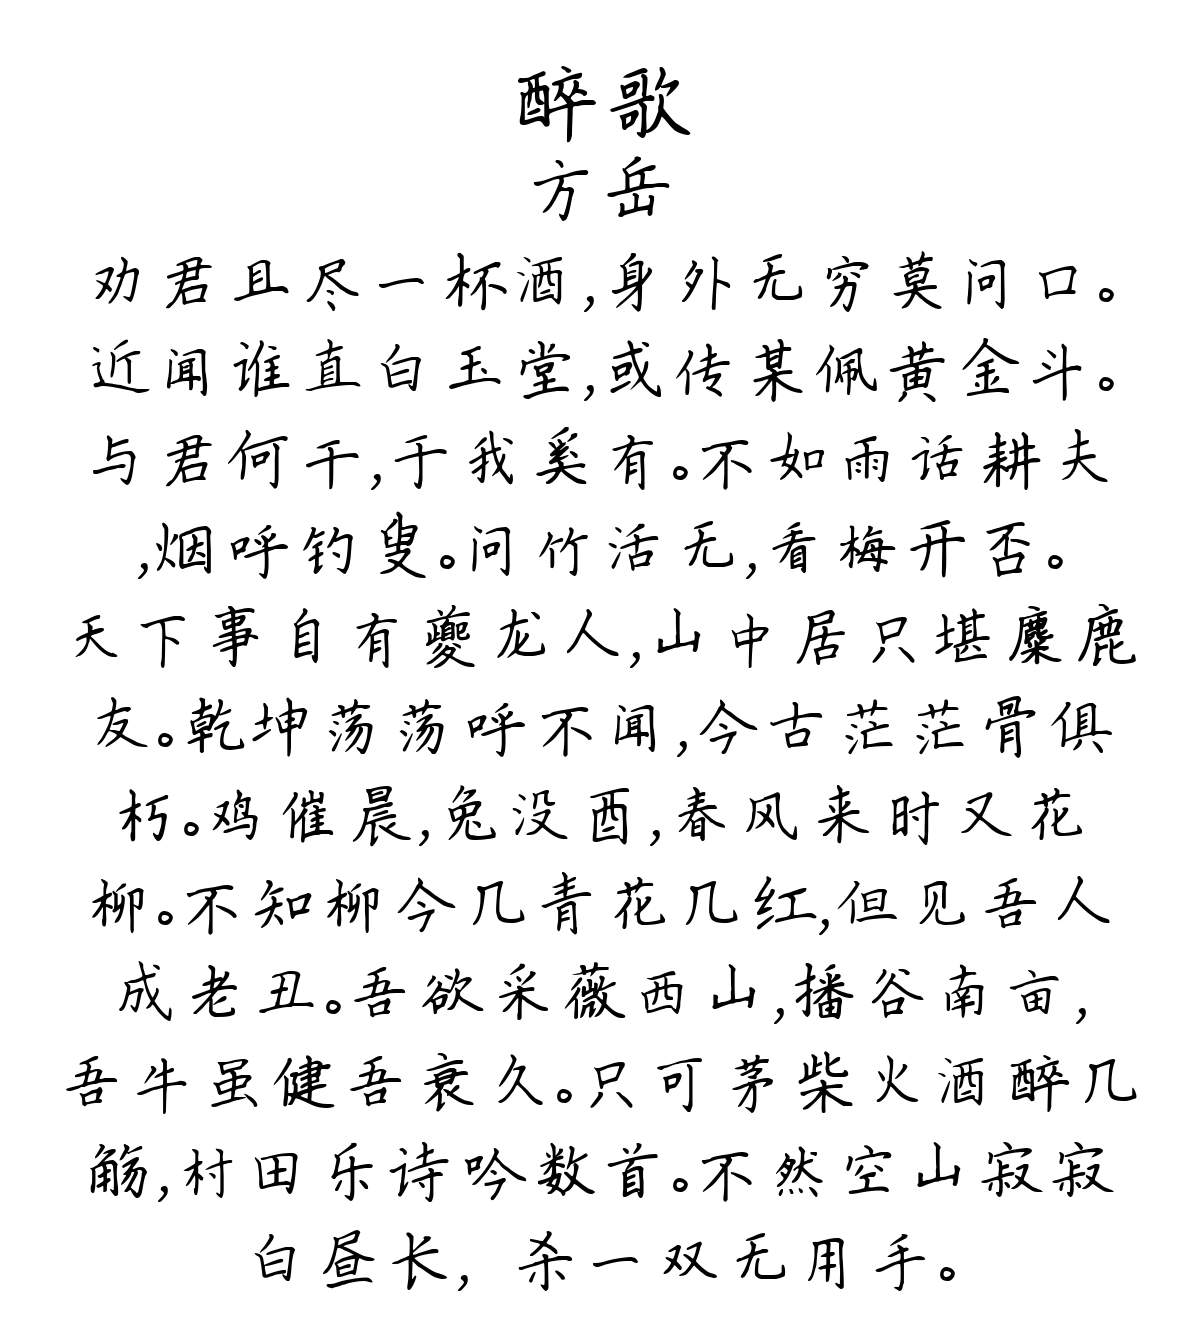 醉歌
方岳
劝君且尽一杯酒,身外无穷莫问口。
近闻谁直白玉堂,或传某佩黄金斗。
与君何干,于我奚有。不如雨话耕夫
,烟呼钓叟。问竹活无,看梅开否。
天下事自有夔龙人,山中居只堪麋鹿
友。乾坤荡荡呼不闻,今古茫茫骨俱
朽。鸡催晨,兔没酉,春风来时又花
柳。不知柳今几青花几红,但见吾人
成老丑。吾欲采薇西山,播谷南亩,
吾牛虽健吾衰久。只可茅柴火酒醉几
觞,村田乐诗吟数首。不然空山寂寂
白昼长，杀一双无用手。